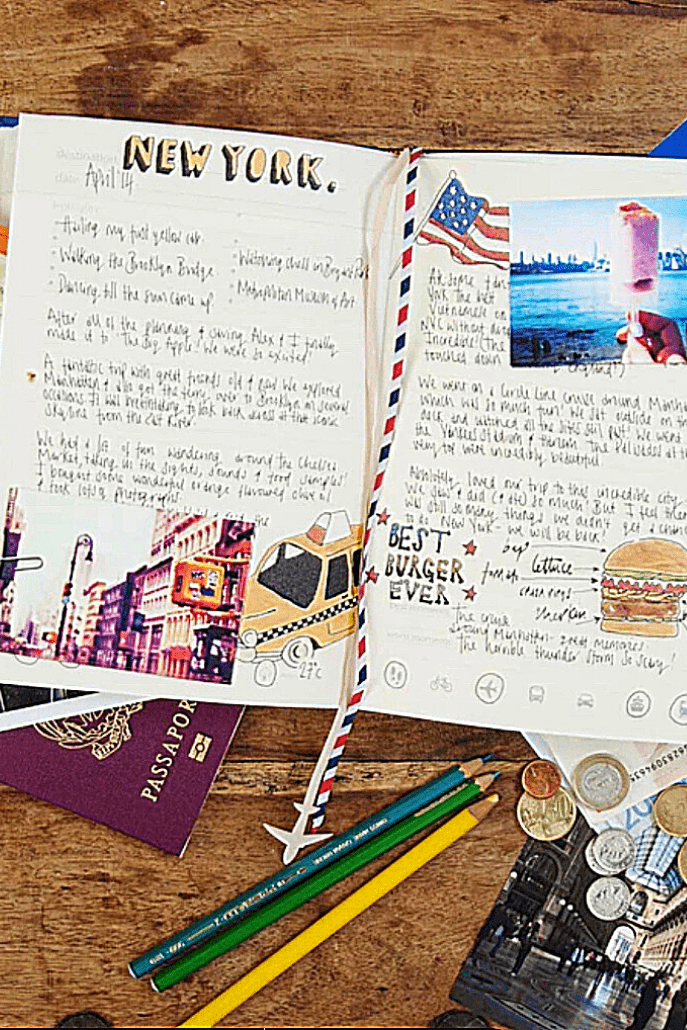 destination
NEW YORK.
date April '14
Hailing my first yellow cab
Walking the Brooklyn Bridge
Watching chess in Bryant Park
Dancing till the sun came up
Metropolitan Museum of Art
After all of the planning & saving Alex & I finally
made it to 'The Big Apple'! We were so excited!
A fantastic trip with great friends old & new. We explored
Manhattan & also got the ferry over to Brooklyn on several
occasions. It was breathtaking to look back across at that iconic
skyline from the East River.
We had a lot of fun wandering around the Chelsea
Market, taking in the sights, sounds & food samples!
I bought some wonderful orange flavoured olive oil
& took lots of photographs.
27°C
York. The best
Vietnamese
NYC without
Incredible! (The
touched down
We went on a Circle Line cruise around Manha
which was so much fun! We sat outside on th
deck and watched all the sites sail past! We went
the Yankees stadium & Harlem. The Palisades at th
very top were incredibly beautiful.
Absolutely loved our trip to this incredible city.
We saw & did (& ate) so much! But I feel ther
was still so many things we didn't get a chan
to do. New York - we will be back!
BEST
BURGER
EVER
bun
lettuce
tomato
onion rings
The cruise
around Manhattan - great memories!
The horrible thunder storm so scary!
PASSAPOR